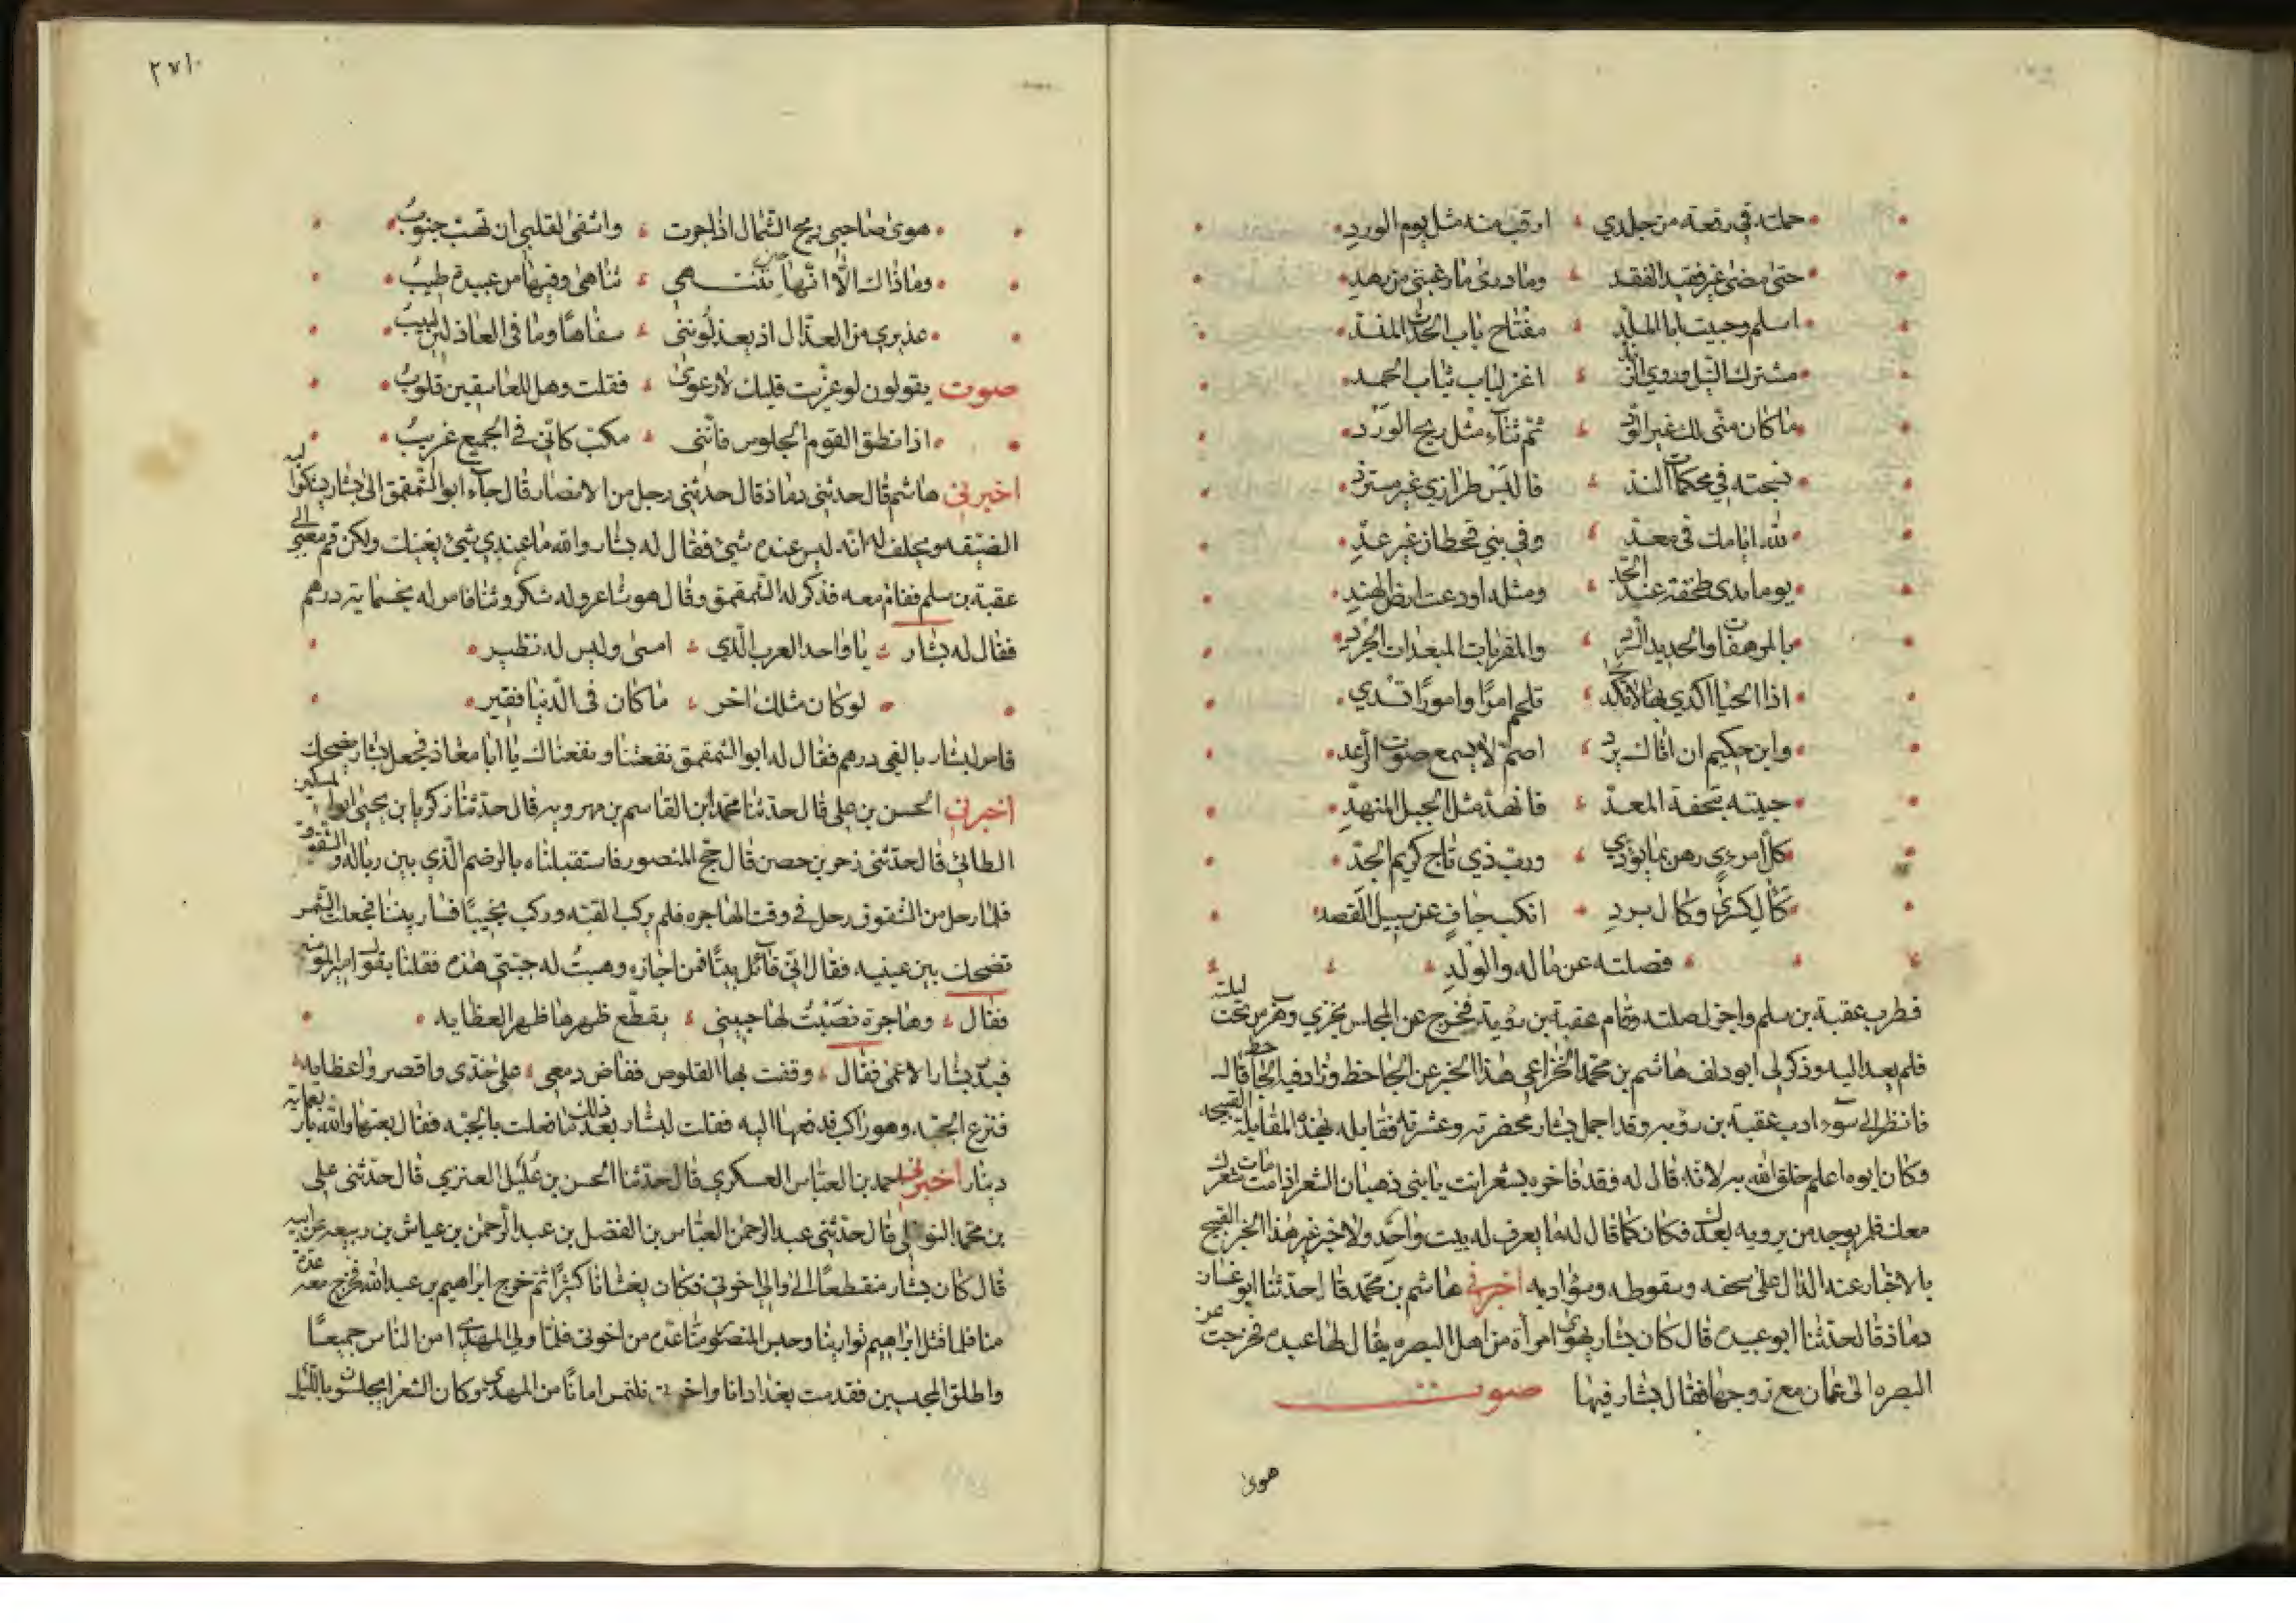 حملته في رقعة من جلدي ارقب منه مثل يوم الورد
حتى مضى غير فقيد الفقد وما درى ما رغبتي من زهد
اسلم وحييت ابا الملد مفتاح باب الحدث المنسد
مشترك النيل وروي الزند اغر لباب ثياب الحمد
ما كان مني لك غير الود ثم ثناء مثل ريح الورد
نسجته في محكمات الند فالبس طرازي غير مسترد
لله ايامك في معد وفي بني قحطان غير عد
يوما بذي طخفة عند الحد ومثله اودعت ارض الهند
بالمرهفات والحديد السرد والمقربات المبعدات الجرد
اذا الحيا اكدي بها لا تكدي تلحم امرا وامورا تسدي
وابن حكيم ان اتاك يردي اصم لا يسمع صوت الرعد
حييته بتحفة المعد فانهد مثل الجبل المنهد
كل امرء رهن بما يؤدي ورب ذي تاج كريم الجد
كآل كسرى وكآل برد انكب جاف عن سبيل القصد
فصلته عن ماله والولد
فطرب عقبة بن سلم واجزل صلته وقام عقبة بن رؤبة فخرج عن المجلس بخزي وهرب من تحت ليلته
فلم يعد اليه وذكر لي ابو دلف هاشم بن محمد الخزاعي هذا الخبر عن الجاحظ وزاد فيه الجاحظ قال
فانظر الى سوء ادب عقبة بن رؤبه وقد اجمل بشار محضرته وعشرته فقابله بهذه المقابلة القبيحه
وكان ابوه اعلم خلق الله به لانه قال له فقد فاخره بشعر انت يا بني ذهبان الشعر اذا مت مات شعرك
معك فلم يوجد من يرويه بعدك فكان كما قال له ما يعرف له بيت واحد ولا خبر غير هذا الخبر القبيح
بالاخبار عنه الدال على سخفه وسقوطه وسوء ادبه اخبرني هاشم بن محمد قال حدثنا ابو غسان
دماذ قال حدثنا ابو عبيده قال كان بشار يهوى امرأة من اهل البصره يقال لها عبيده فخرجت عن
البصره الى عمان مع زوجها فقال بشار فيها صوت
هوى
٢٧١
هوى صاحبي ريح الشمال اذا جرت واشفى لقلبي ان تهب جنوب
وما ذاك الا انها حين تنتهي تناهى وفيها من عبيدة طيب
عذيري من العذال اذ يعذلونني سفاها وما في العاذلين لبيب
صوت يقولون لو عزيت قلبك لارعوى فقلت وهل للعاشقين قلوب
اذا نطق القوم الجلوس فانني مكب كاني في الجميع غريب
اخبرني هاشم قال حدثني دماذ قال حدثني رجل من الانصار قال جاء ابو الشمقمق الى بشار يشكوا اليه
الضيقه ويحلف له انه ليس عنده شيئ فقال له بشار والله ما عندي شيئ يغنيك ولكن قم معي الى
عقبة بن سلم فقام معه فذكر له الشمقمق وقال هو شاعر وله شكر وثنا فامر له بخسمايه درهم
فقال له بشار يا واحد العرب الذي امسى وليس له نظير
لو كان مثلك اخر ما كان في الدنيا فقير
فامر لبشار بالفي درهم فقال له ابو الشمقمق نفعتنا ونفعناك يا ابا معاذ فجعل بشار يضحك
اخبرني الحسن بن علي قال حدثنا محمد ابن القاسم بن مهرويه قال حدثنا زكريا بن يحيى ابو السكين
الطائي قال حدثني زحر بن حصن قال حج المنصور فاستقبلناه بالرضم الذي بين زباله والشقوق
فلما رحل من الشقوق رحل في وقت الهاجره فلم يركب القبه وركب نجيبا فسار بيننا فجعلت الشمس
تضحك بين عينيه فقال اني قائل بيتا فمن اجازه وهبت له جبتي هذه فقلنا يقول امير المومنين
فقال وهاجرة نصبت لها جبيني يقطع ظهرها ظهر العظايه
فبدر بشار الاعمى فقال وقفت بها القلوص ففاض دمعي على خدى واقصر واعظايه
فنزع الجبه وهو راكب فدفعها اليه فقلت لبشار بعد ذلك ما فعلت بالجبه فقال بعتها والله باربعمايه
دينار اخبرني احمد بن العباس العسكري قال حدثنا الحسن بن عليل العنزي قال حدثني علي
بن محمد النوفلي قال حدثني عبد الرحمن العباس بن الفضل بن عبد الرحمن بن عياش بن ربيعه عن ابيه
قال كان بشار منقطعا الي والى اخوتي فكان يغشانا كثيرا ثم خرج ابراهيم بن عبد الله فخرج معه عدة
منا فلما قتل ابراهيم توارينا وحبس المنصور منا عدة من اخوتي فلما ولي المهدي امن الناس جميعا
واطلق المحبسين فقدمت بغداد انا واخوتي نلتمس امانا من المهدي وكان الشعرا يجلسون بالليل